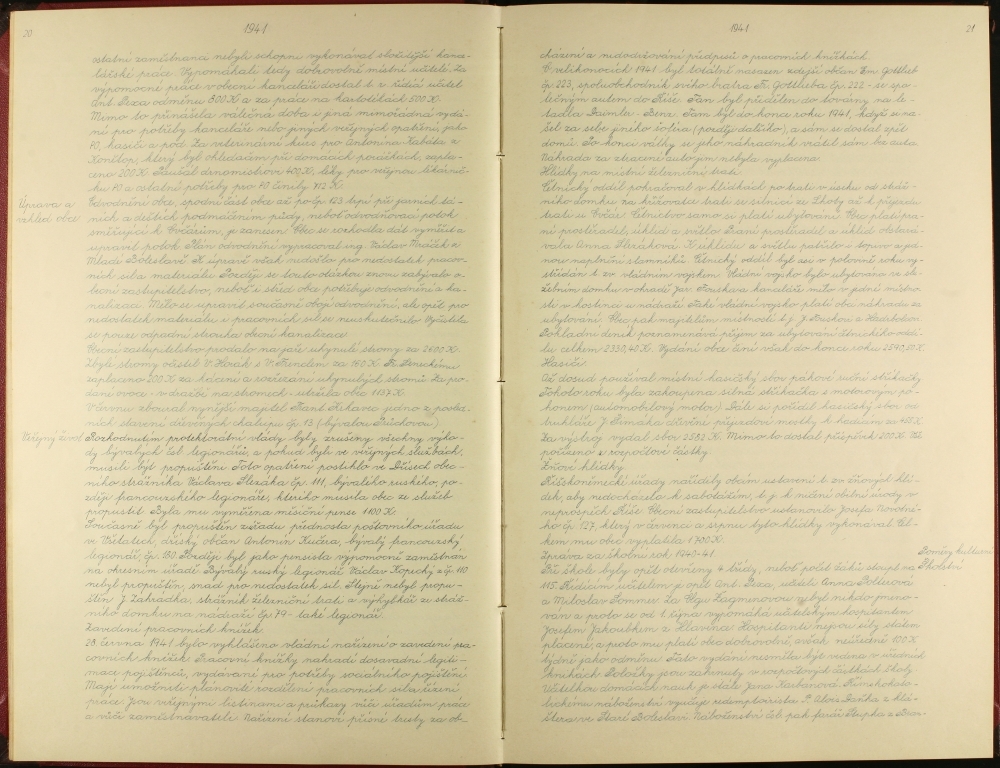 20
1941
ostatní zaměstnanci nebyli schopni vykonávat složitější kance-
lářské práce. Vypomáhali tedy dobrovolně místní učitelé. Za
výpomocné práce v obecní kanceláři dostal t. r. řídící učitel
Ant. Reza odměnu 800 K a za práce na kartotékách 500 K.
Mimo to přinášela válečná doba i jiná mimořádná vydá-
ní pro potřeby kanceláře nebo jiných veřejných opatření, jako
PO, hasiči a pod. Za veterinární kurs pro Antonína Kabáta z
který byl ohledačem při domácích porážkách, zapla-
ceno 200 K. Paušál 400 K, léky pro veřejnou lékárnič-
ku PO a ostatní potřeby pro PO činily 712 K.
Úprava a
vzhled obce
Odvodnění obce, spodní část obce až po čp. 123 trpí při jarních tá-
ních a deštích podmáčením půdy, neboť odvodňovací potok
směřující k Ovčárům, je zanesen. Obec se rozhodla dát vyměřit a
upravit potok. Plán odvodnění vypracoval ing. Václav Mráček z
Mladé Boleslavě. K úpravě však nedošlo pro nedostatek pracov-
ních sil a materiálu. Později se touto otázkou znovu zabývalo o-
becní zastupitelstvo, neboť i střed obce potřebuje odvodnění a ka-
nalizaci. Mělo se upravit současně obojí odvodnění, ale opět pro
nedostatek materiálu a pracovních sil se neuskutečnilo. Vyčistila
se pouze odpadní strouha obecní kanalizace.
Obecní zastupitelstvo prodalo na jaře uhynulé stromy za 2600 K.
Zbylé stromy očistil V. Horák s V. Francem za 160 K. Fr. Stenickému
zaplaceno 200 K za kácení a pořezání uhynulých stromů. Za pro-
dání ovoce - v dražbě na stromech - utržila obec 1157 K.
V červnu zboural nynější majitel Frant. Krkavec jedno z posled-
ních stavení dřevěných chalupu čp. 13 (bývalou Průchovu).
Veřejný život
Rozhodnutím protektorátní vlády, byly zrušeny všechny výho-
dy bývalých čsl. legionářů, a pokud byli ve veřejných službách,
museli být propuštěni. Toto opatření postihlo ve Dřísech obec-
ního strážníka Václava Slezáka čp. 111, bývalého ruského, po-
zději francouzského legionáře, kterého musela obec ze služeb
propustit. Byla mu vyměřena měsíční penze 1100 K.
Současně byl propuštěn z úřadu přednosta poštovního úřadu
ve Všetatech, dříský občan Antonín Kučera, bývalý francouzský
legionář, čp. 180. Později byl jako penzista výpomocně zaměstnán
na okresním úřadě. Bývalý ruský legionář Václav Kopický z čp. 110
nebyl propuštěn, snad pro nedostatek sil. Stejně nebyl propu-
štěn J. Zahrádka, strážník železniční trati a výhybkář ze stráž-
ního domku na nádraží čp. 79 - také legionář.
Zavedení pracovních knížek.
28. června 1941 bylo vyhlášeno vládní nařízení o zavedení pra-
covních knížek. Pracovní knížky nahradí dosavadní legiti-
mace pojištěnců, vydávané pro potřeby sociálního pojištění.
Mají umožniti plánovité rozdělení pracovních sil a řízení
práce. Jsou veřejnými listinami a průkazy vůči úřadům práce
a vůči zaměstnavateli. Nařízení stanoví přísné tresty za ob-
1941
21
cházení a nedodržování předpisů o pracovních knížkách.
O velikonocích 1941 byl totálně nasazen zdejší občan Em. Gottlieb
čp. 223, spoluobchodník svého bratra Fr. Gottlieba čp. 222 - se spo-
lečným autem do Říše. Tam byl přidělen do továrny na le-
tadla Daimler - Benz. Tam byl do konce roku 1941, kdy si na-
šel za sebe jiného šoféra (později dalšího), a sám se dostal zpět
domů. Po konci války se jeho náhradník vrátil sám bez auta.
Náhrada za ztracené auto jim nebyla vyplacena.
Hlídky na místní železniční trati.
Četnický oddíl pokračoval v hlídkách po trati v úseku od stráž-
ního domku za křižovatkou trati se silnicí ze Lhoty až k přejezdu
trati u Ovčár. Četnictvo samo si platí ubytování. Obec platí pra-
ní prostěradel, úklid a světlo. Praní prostěradel a úklid obstará-
vala Anna Slezáková. K úklidu a světlu patřilo i topivo a jed-
nou naplnění slamníků. Četnický oddíl byl asi v polovině roku vy-
střídán t. zv. vládním vojskem. Vládní vojsko bylo ubytováno ve slu-
žebním domku v ohradě Jar. Fouska a kancelář měla v jedné místno-
sti v hostinci u nádraží. Také vládní vojsko platí obci náhradu za
ubytování. Obec pak majitelům místností t. j. J. Fouskovi a Hadrbolcovi.
Pokladní deník poznamenává příjem za ubytování četnického oddí-
lu celkem 2330,40 K. Vydání obce činí však do konce roku 2540,20 K.
Hasiči.
Až dosud používal místní hasičský sbor pákové ruční stříkačky.
Tohoto roku byla zakoupena silná stříkačka s motorovým po-
honem (automobilový motor). Dále si pořídil hasičský sbor u
truhláře J. Šimáka dřevěné přejezdové mostky k hadicím za 455 K.
Za výstroj vydal sbor 2583 K. Mimo to dostal příspěvek 200 K. Vše
pořízeno z rozpočtové částky.
Žňové hlídky.
Říšskoněmecké úřady nařídily obcím ustavení t. zv. žňových hlí-
dek, aby nedocházelo k sabotážím, t. j. k ničení obilní úrody v
neprospěch Říše. Obecní zastupitelstvo ustanovilo Josefa Novotné-
ho čp. 127, který v červenci a srpnu tyto hlídky vykonával. Cel-
kem mu obec vyplatila 1700 K.
Poměry kulturní
Školství
Zpráva za školní rok 1940-41.
Při škole byly opět otevřeny 4 třídy, neboť počet žáků stoupl na
115. Řídícím učitelem je opět Ant. Reza, učiteli Anna Polterová
a Miloslav Sommer. Za Olgu Lagrunovou nebyl nikdo jmeno-
ván a proto se od 1. října vypomáhá učitelským hospitantem
Josefem Jakoubkem z Hlavince. Hospitanti nejsou síly státem
placené, a proto mu platí obec dobrovolně, avšak neúředně 100 K
týdně jako odměnu. Tato vydání nesměla být vedena v úředních
knihách. Položky jsou zahrnuty v rozpočtových částkách školy.
Učitelkou domácích nauk je stále Jana Karbanová. Římskokato-
lickému náboženství vyučuje redemptorista P. Alois Daňka z klá-
štera ve Staré Boleslavi. Náboženství čsl. pak farář Stupka z Bran-